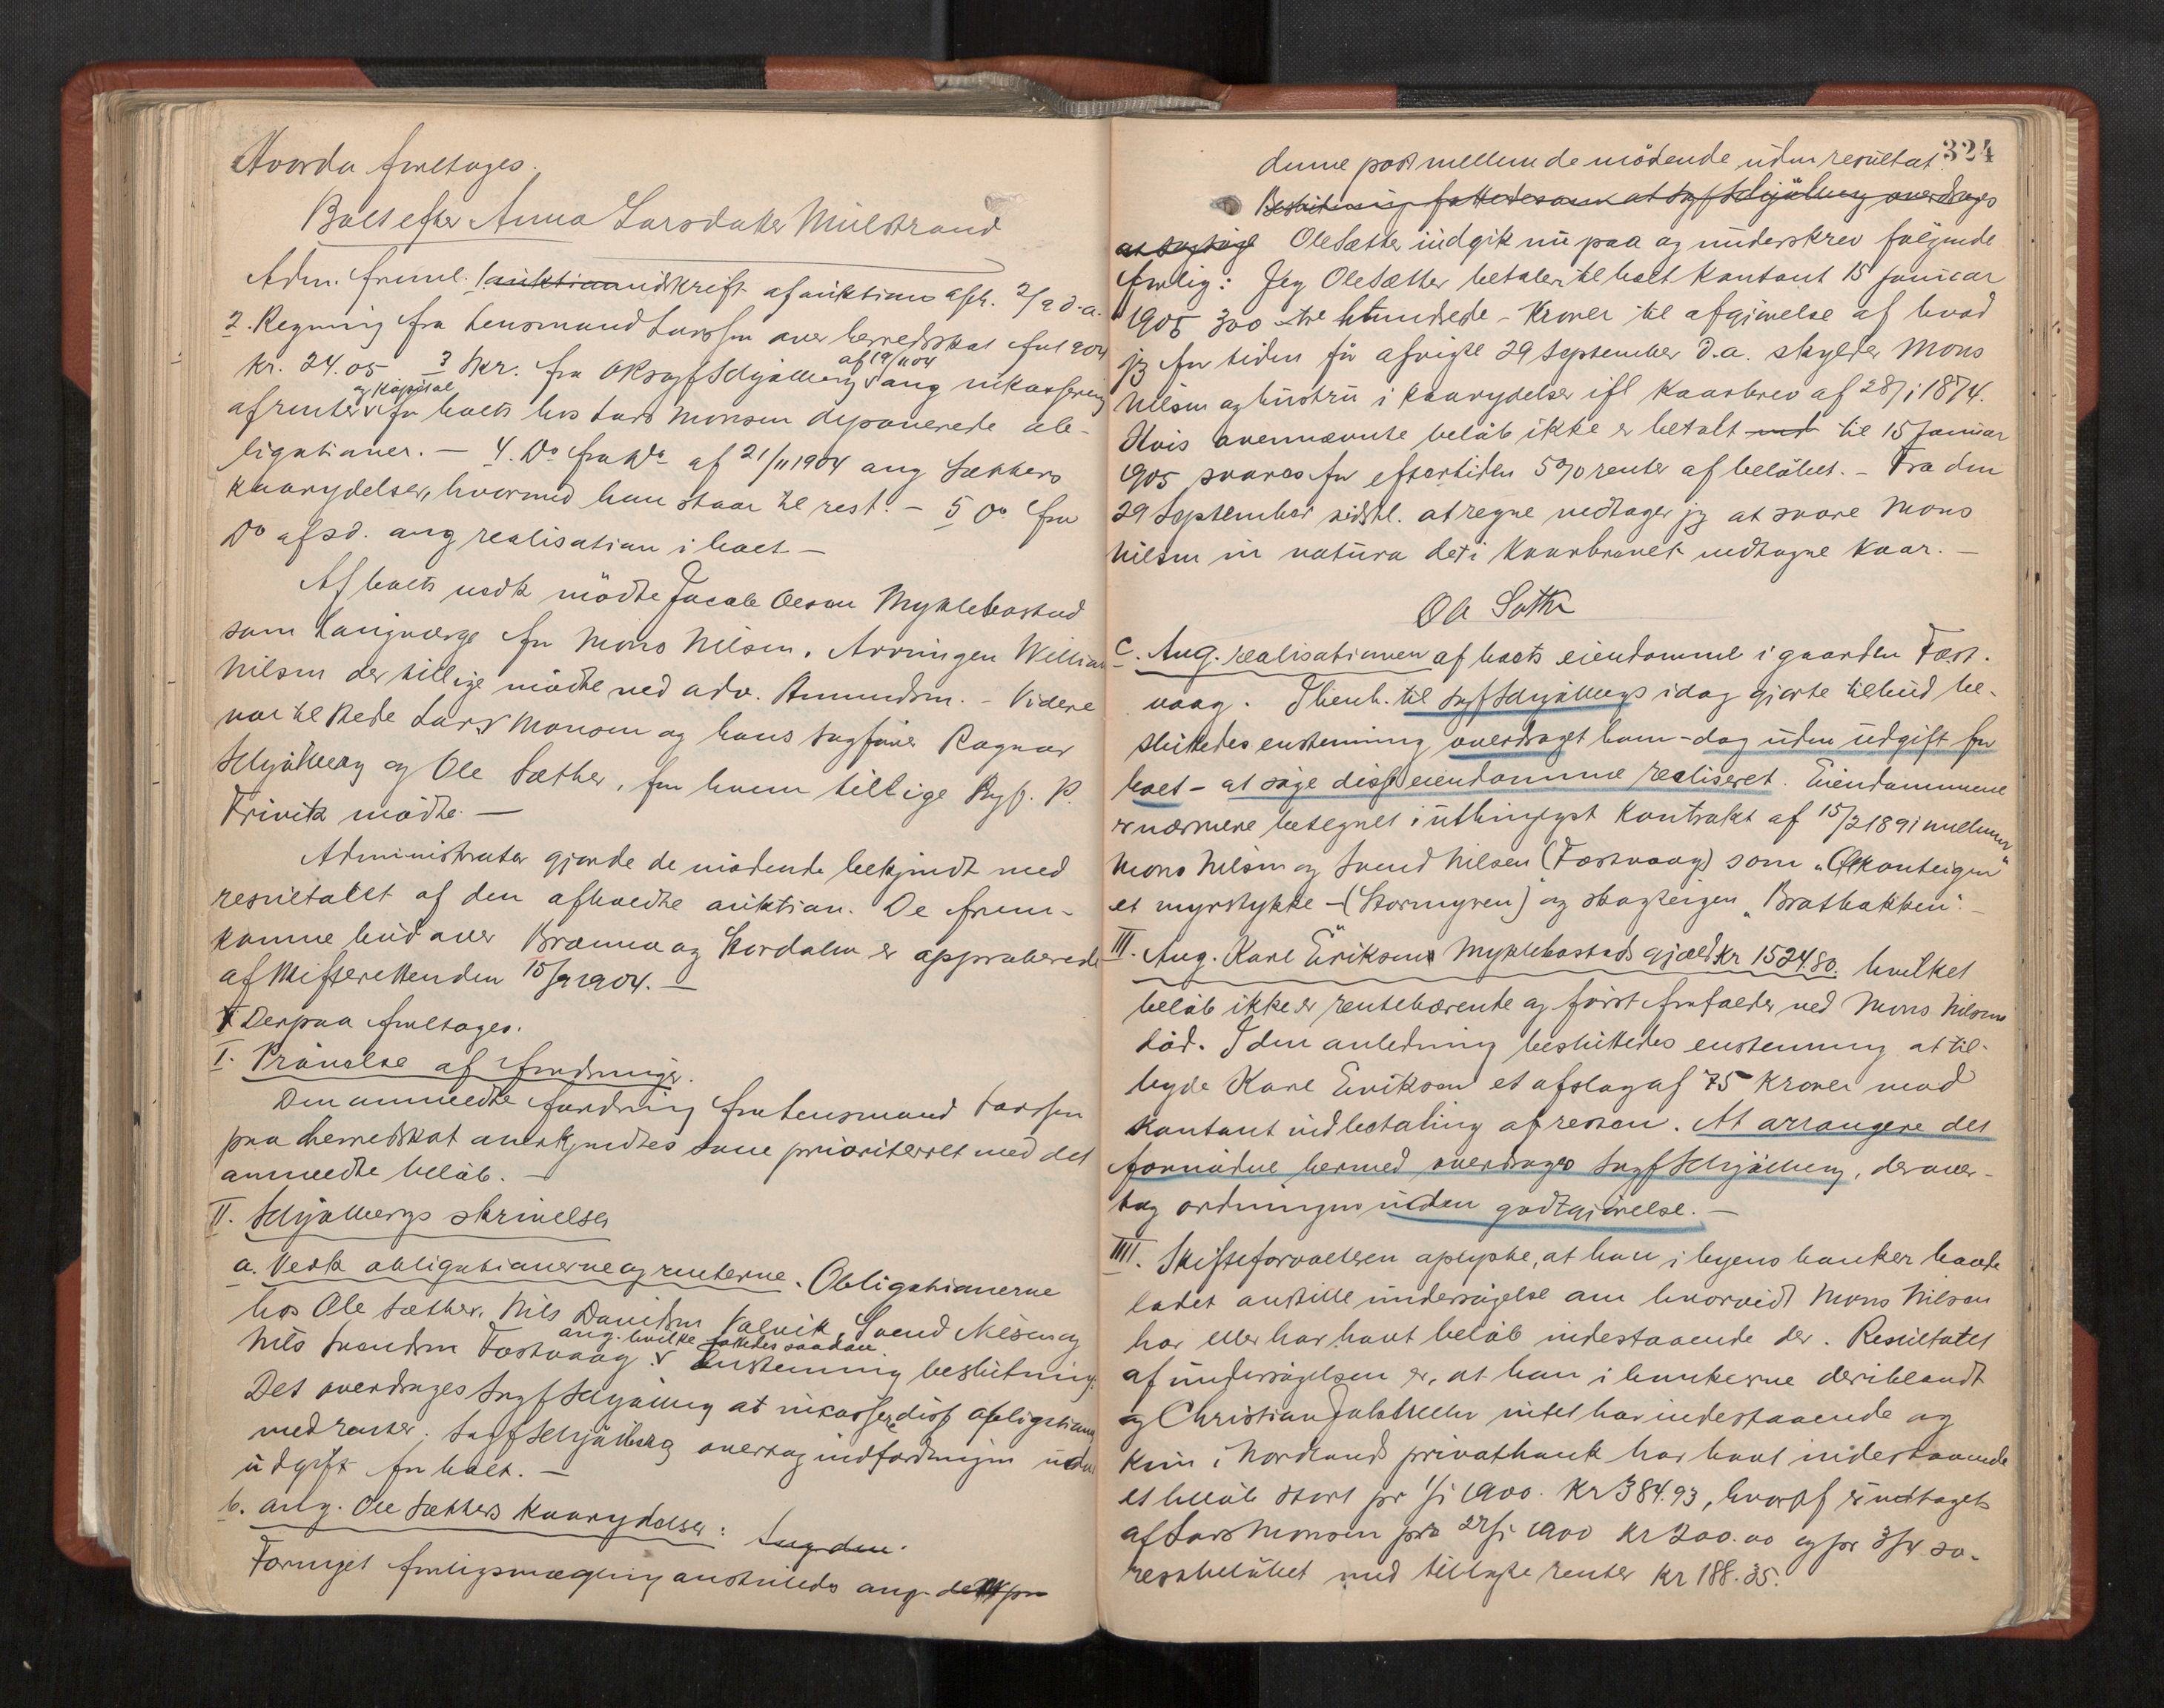 Hvorda foretages.
Boet efter Anna Larsdatter Mulstrand
Adm. freml. 1 auktion udskrift af auktion afh. 2/9 d.a.
2. Regning fra lensmand Larssen over herredsskat for 1904
kr. 24.05 3 Skr. fra Oksagf Schjølberg af 19/11 04 ang inkassering
af renter og kapital for boets hos Lars Monsen deponerede ob-
ligationer. – 4. Do fra Do af 21/11 1904 ang Sæthers
kaarydelser, hvormed han staar til rest. – 5 Do fra
Do af sd. ang realisation i boet –
Af boets vedk mødte Jacob Olsen Myklebostad
som laugværge for Mons Nilsen. Arvingen William
Nilsen der tillige mødte ved adv. Amundsen. – Videre
var til stede Lars Monsen og hans sagfører Ragnar
Schjølberg og Ole Sæther, for hvem tillige Sagf. P.
Trivitz mødte. –
Administrator gjorde de mødende bekjendt med
resultatet af den afholdte auktion. De frem-
komne bud over Brænna og Stordalen er approberede
af skifteretten den 15/9 1904. –
Derpaa foretages.
I. Prøvelse af fordringer.
Den anmeldte fordring fra lensmand Larssen
paa herredskat anerkjendtes som prioriteret med det
anmeldte beløb. –
II. Schjølbergs skrivelser
a. Vedk obligationerne og renterne. Obligationerne
hos Ole Sæther, Nils Davidsen Valvik, Svend Nilsen og
Nils Svendsen Tostvaag ang. hvilke fattedes saadan enstemmig beslutning:
Det overdrages Sagf Schjølberg at inkassere disse obligationer
med renter. Sagf Schjølberg overtog indfordringen uden
udgift for boet. –
b. ang. Ole Sæthers kaarydelser: Sag den.
Fornyet forligsmægling anstilledes ang. de
324
denne post mellem de mødende uden resultat.
Beslutning fattedes om at Sagf Schjølberg overdrages
at sagsøge Ole Sæther indgik nu paa og underskrev følgende
forlig: Jeg Ole Sæther betaler til boet kontant 15 januar
1905 300 – tre hundrede – kroner til afgjørelse af hvad
jeg for tiden før afvigte 29 September d.a. skylder Mons
Nilsen og hustru i kaarydelser ifl kaarbrev af 28/1 1874.
Hvis ovennævnte beløb ikke er betalt ind til 15 januar
1905 svares for eftertiden 5% renter af beløbet. – Fra den
29 September sidstl. at regne vedtager jeg at svare Mons
Nilsen in natura det i kaarbrevet vedtagne kaar. –
Ole Sæther
c. Ang. realisationen af boets eiendomme i gaarden Tost-
vaag. I henh. til Sagf Schjølbergs idag gjorte tilbud be-
sluttedes enstemmig overdraget ham – dog uden udgift for
boet – at søge disse eiendomme realiseret. Eiendommene
er nærmere betegnet i uthinglyst kontrakt af 15/2 1891 mellem
Mons Nilsen og Svend Nilsen (Tostvaag) som "Økonteigen"
et myrstykke – (Stormyren) og skogteigen "Bratbakken". –
III. Ang. Karl Eriksens Myklebostads gjæld kr 1524.80. hvilket
beløb ikke er rentebærende og først forfalder ved Mons Nilsens
død. I den anledning besluttedes enstemmig at til-
byde Karl Eriksen et afslag af 75 kroner mod
kontant indbetaling af resten. At arrangere det
fornødne hermed overdroges Sagf Schjølberg, der over-
tog ordningen uden godtgjørelse. –
IIII. Skifteforvalteren oplyste, at han i byens banker havde
ladet anstille undersøgelse om hvorvidt Mons Nilsen
har eller har havt beløb indestaaende der. Resultatet
af undersøgelsen er, at han i bankerne deriblandt
og Christian Jakhelln intet har indestaaende og
kun i Nordlands privatbank har havt indestaaende
et beløb stort pr 1/1 1900. Kr 384.93, hvoraf er udtaget
af Lars Monsen pr 27/1 1900 kr 200.00 og pr 3/4 s.a.
restbeløbet med tillagte renter kr 188.35.